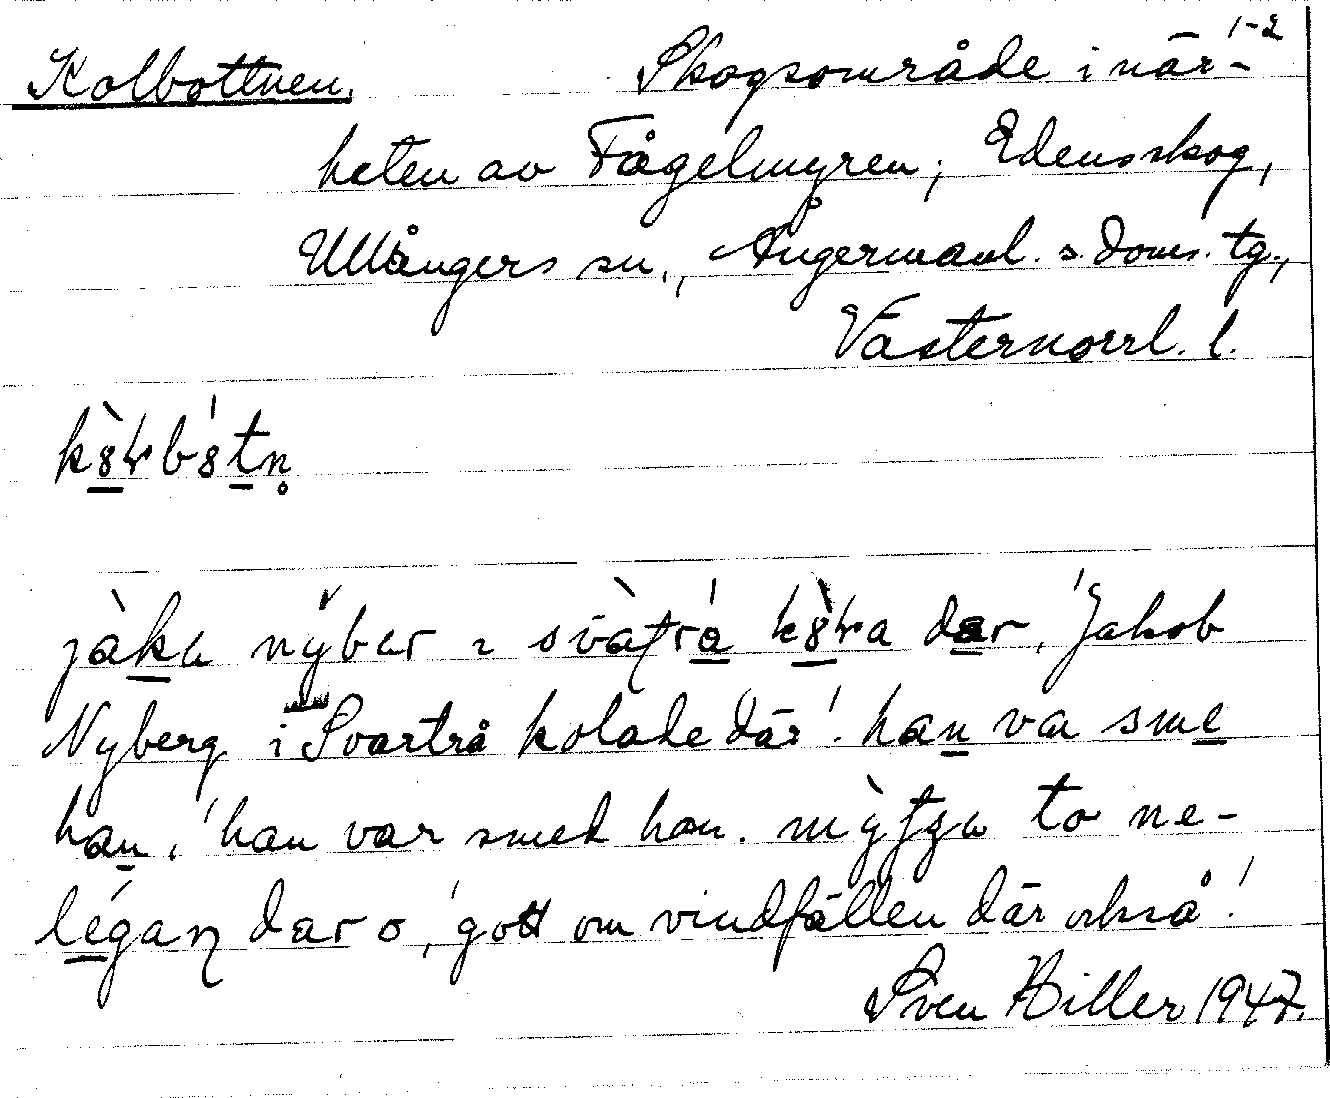 1-2
Kolbottnen. Skogsområde i när-
heten av Fågelmyren; Edensskog,
Ullångers sn., Ångermanl. s. doms. tg.,
Västernorrl. l.
nýbar
'Jakob
Nyberg i Svartrå kolade där'. han va sme
han, 'han var smed han. to ne-
dar o, 'gott om vindfällen där också'.
Sven Hiller 1947.